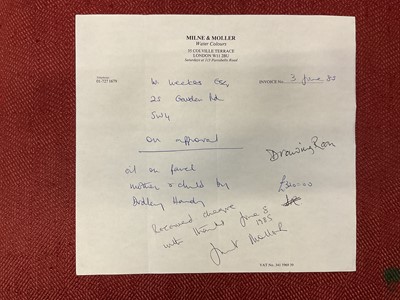 MILNE & MOLLER
Water Colours
35 COLVILLE TERRACE
LONDON W11 2BU
Saturdays at 115 Portobello Road
Telephone
01-727 1679
INVOICE No. 3 June 85
W Weekes Esq
25 Garden Rd
SW4
on approval
Drawing Room
oil on panel
mother & child by
Dudley Hardy
£300-00
Received cheque
with thanks June 8
1985
Moller
VAT No.